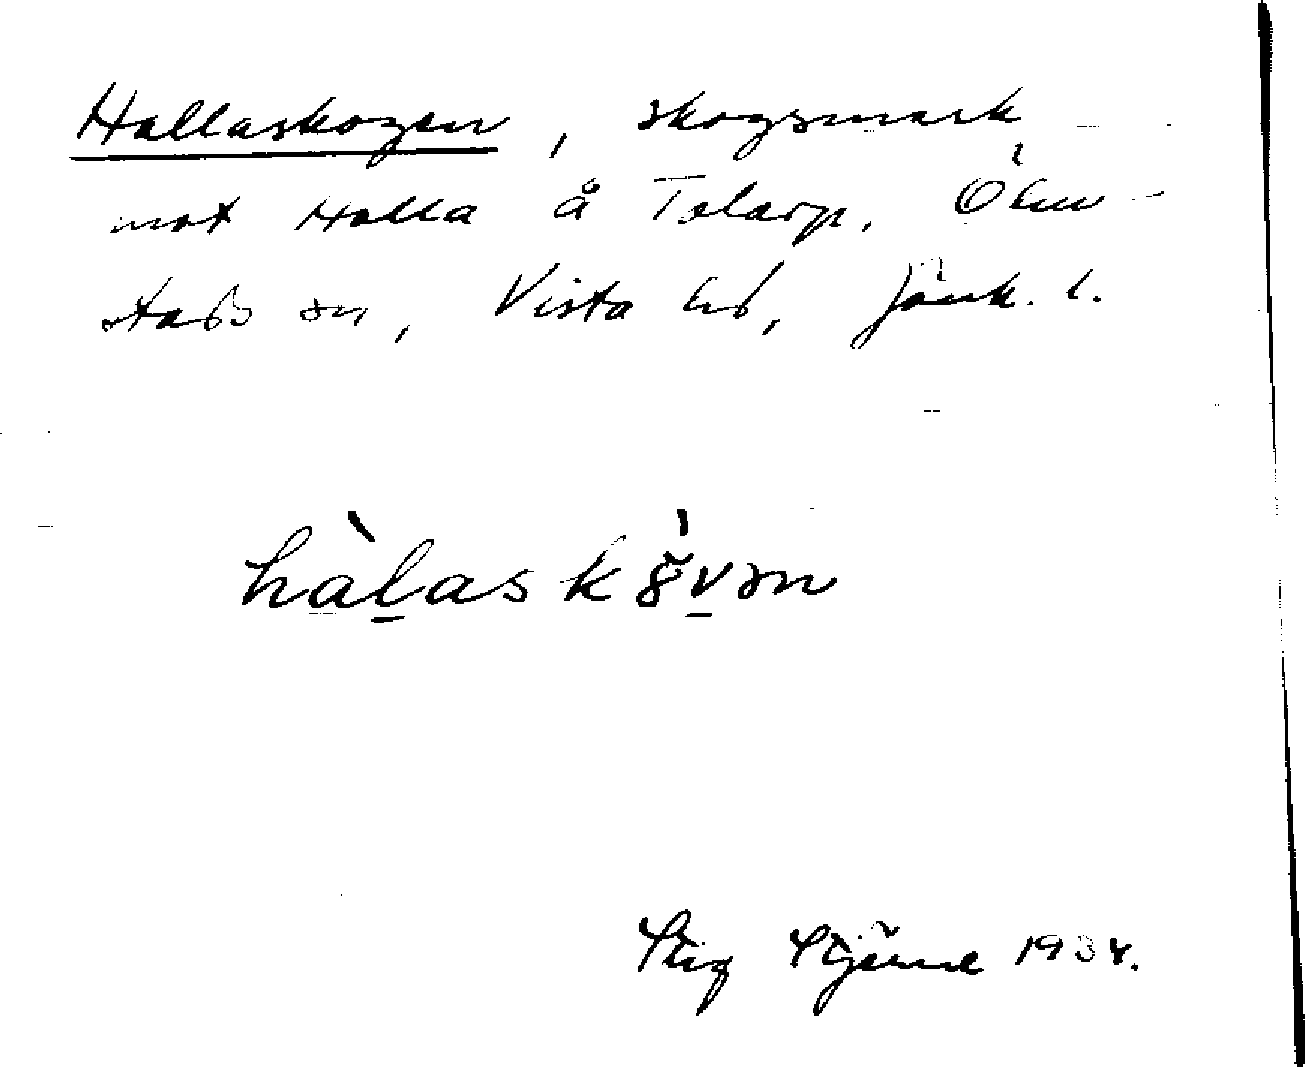 Hallaskogen, skogsmark
mot Halla å Tolarp, Ölm-
stads sn, Vista hd, Jönk. l.
hàl̠askŏ̀v̠ən
Stig Stjärne 1934.